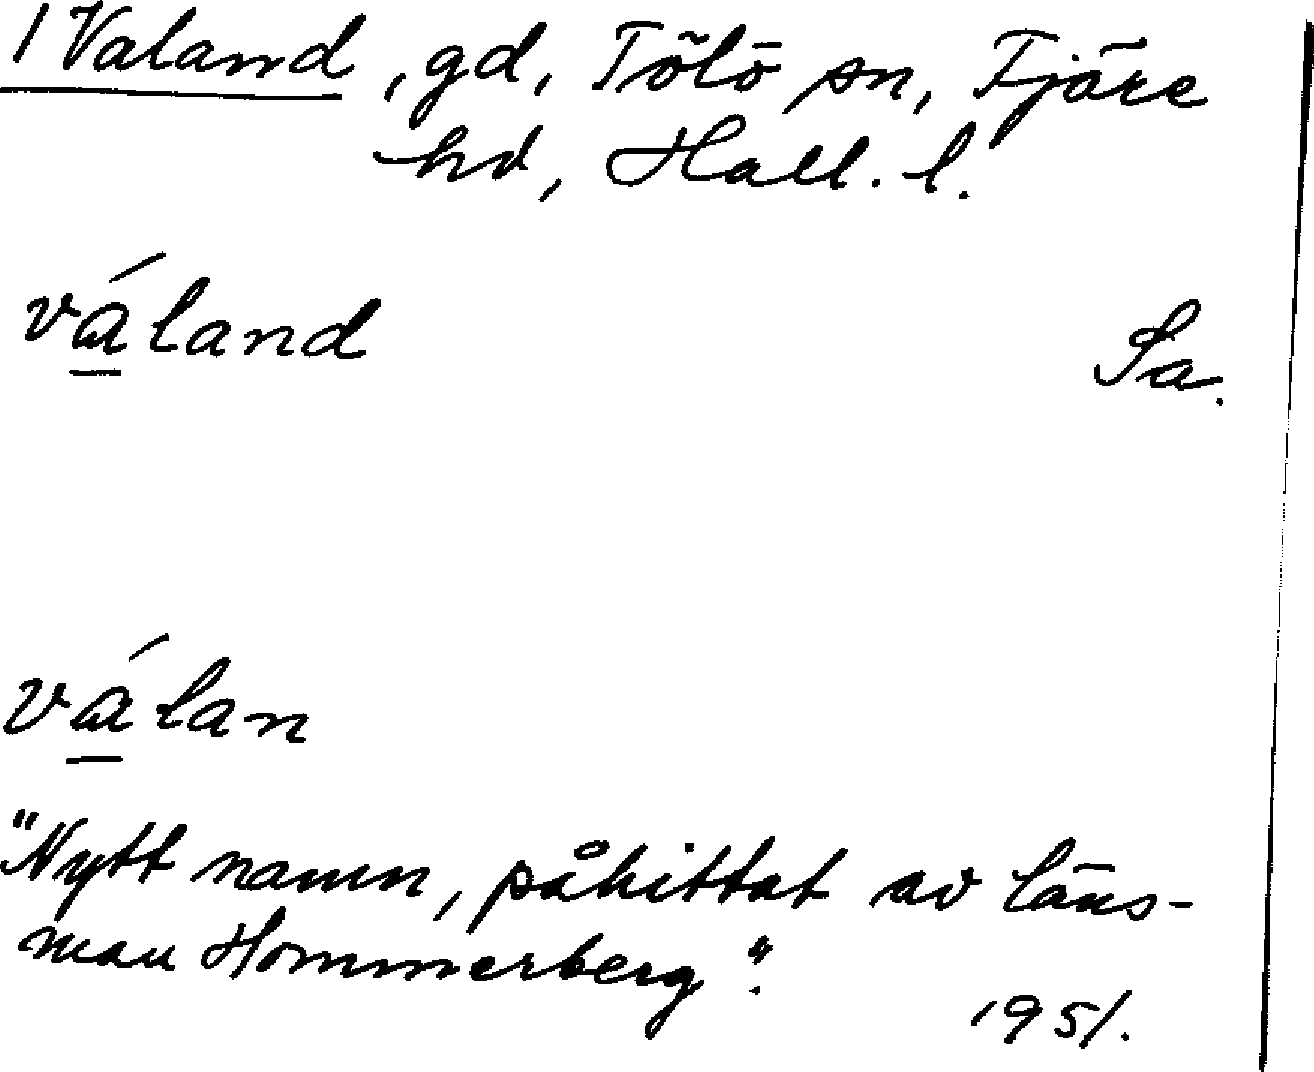 1 Valand, gd, Tölö sn, Fjäre
hd, Hall. l.
váland
Sa.
válan
"Nytt namn, påhittat av läns-
man Hommerberg".
1951.